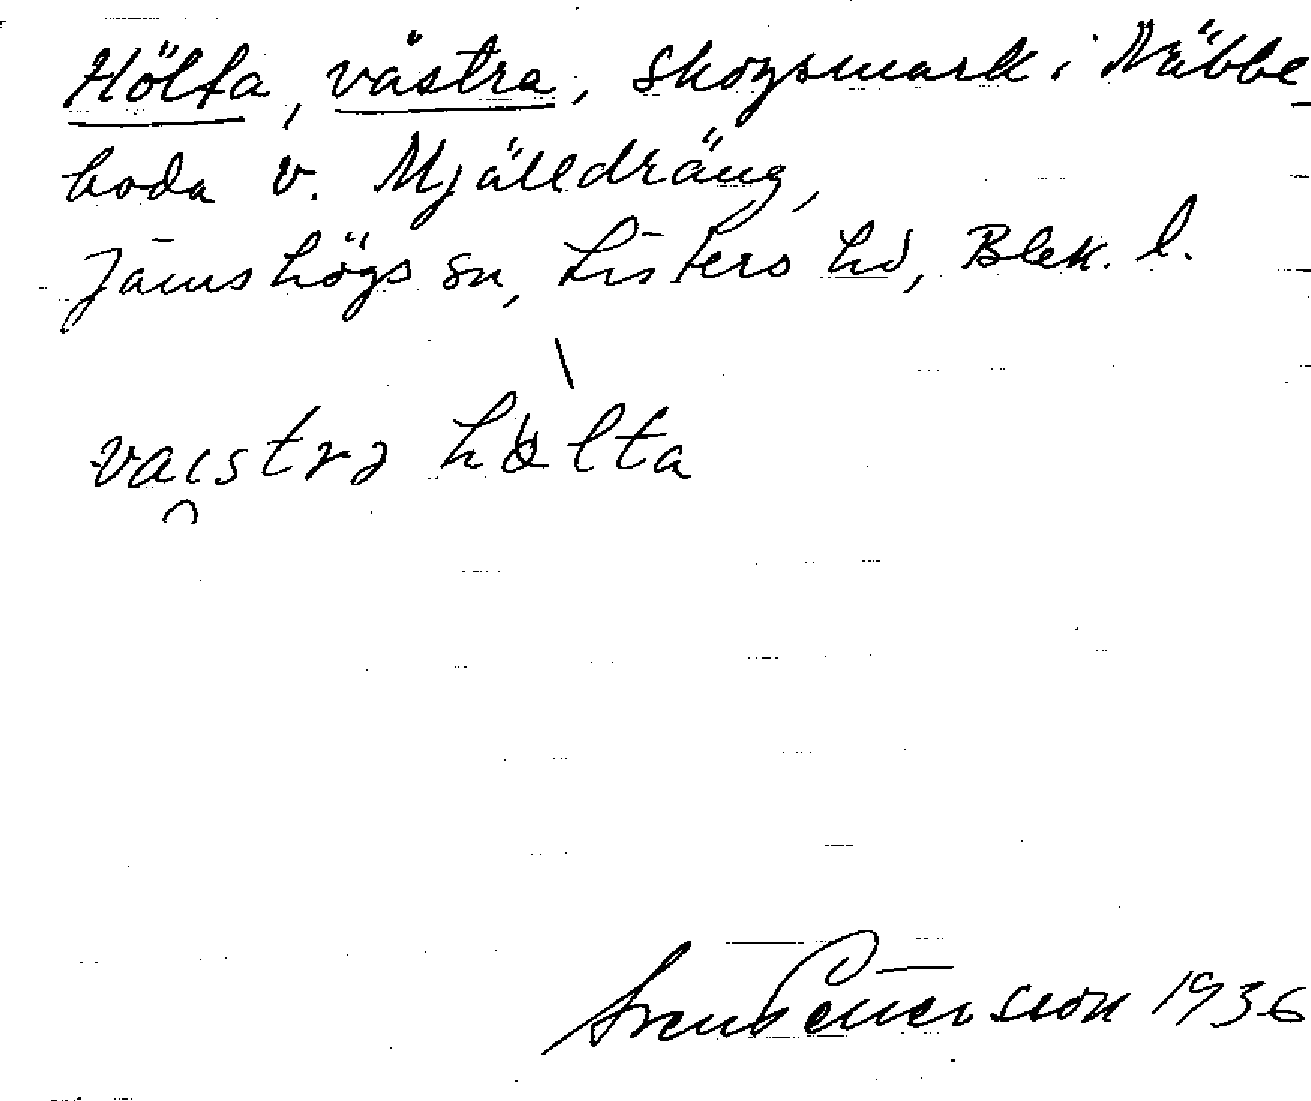 Hölta, västra, skogsmark i Näbbe-
boda v. Mjälldräng,
Jämshögs sn, Listers hd, Blek. l.
vaistrə hølta
Sven Pettersson 1936